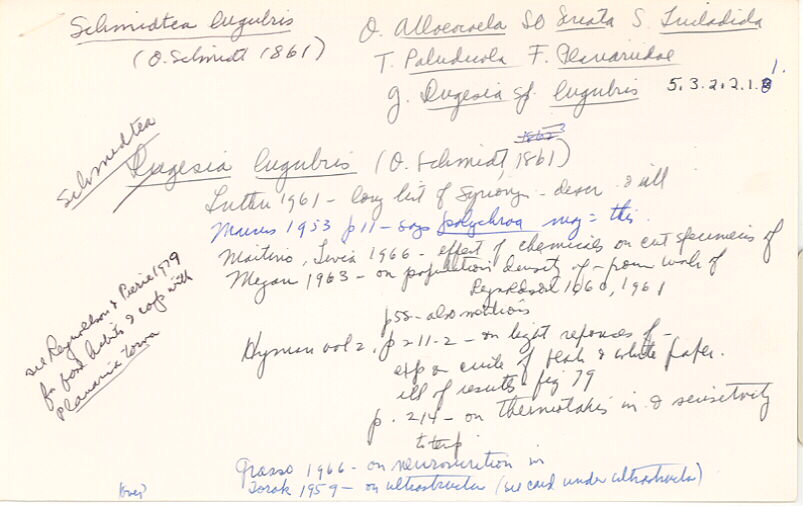 Schmidtea lugubris
(O. Schmidt 1861)
O. Alloeocoela SO Seriata S. Tricladida
T. Paludicola F. Planariidae
G. Dugesia sf. lugubris 5.3.2.2.1.8 1.
Schmidtea
Dugesia lugubris (O. Schmidt, 1861)
Luther 1961 - long list of synony - descr & ill
Marcus 1953 p 11 - says polychroa may = this.
Martino, Livia 1966 - effect of chemicals on cut specimens of
1963 - on population density of - from work of
Reynoldson 1960, 1961
p 58 - also mentions
Hyman vol 2, p 211-2 - on light responses of -
exp on circle of black & white paper.
ill of results fig 79
p. 214 - on thermotaxis in & sensitivity
to temp
Grasso 1966 - on neurosecretion in
Torok 1959 - on ultrastructur (see card under ultrastructur)
(over)
see Reynoldson & Pierie 1979
for food habits & comp with
Planaria torva